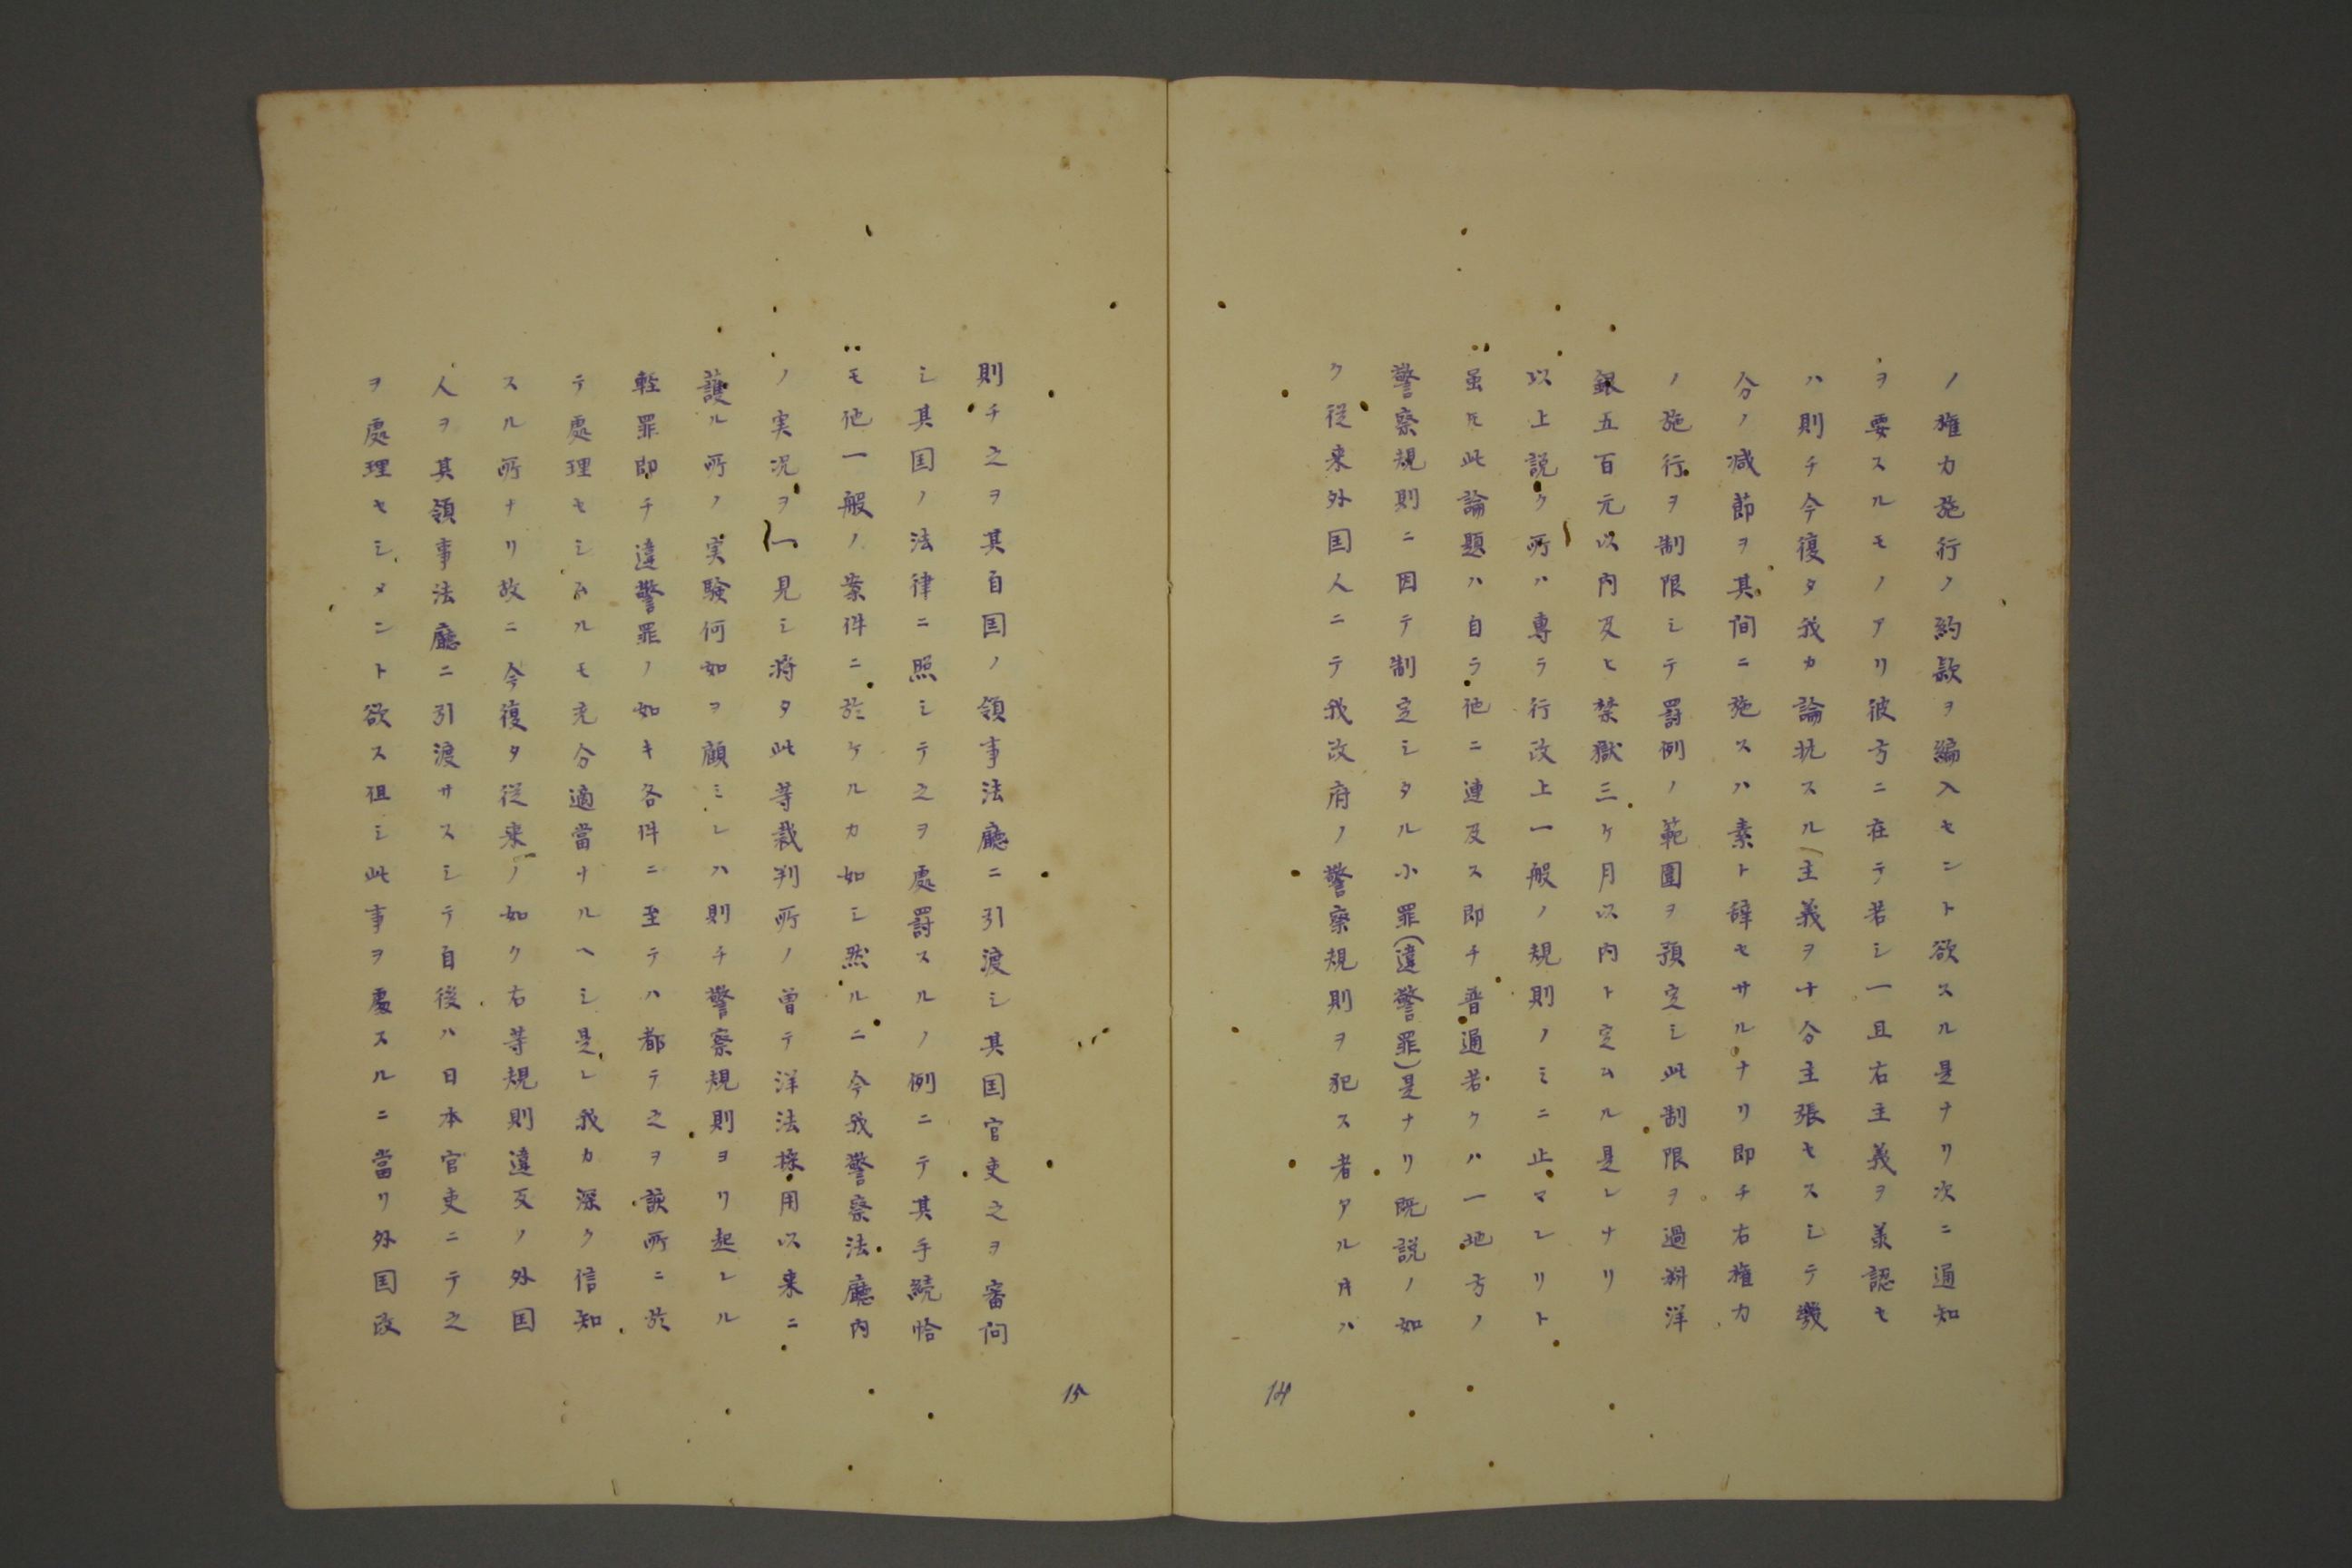 ノ権力施行ノ約款ヲ編入セント欲スル是ナリ次ニ通知
ヲ要スルモノアリ彼方ニ在テ若シ一旦右主義ヲ羕認セ
ハ則チ今復タ我カ論抗スル主義ヲ十分主張セスシテ幾
分ノ减節ヲ其间ニ施スハ素ト辞セサルナリ即チ右権力
ノ施行ヲ制限シテ罰例ノ範圍ヲ預定シ此制限ヲ過料洋
銀五百元以内及ヒ禁獄三ケ月以内ト定ムル是レナリ
以上説ク所ハ專ラ行政上一般ノ規則ノミニ止マレリト
虽𪜈此論題ハ自ラ他ニ連及ス即チ普通若クハ一地方ノ
警察規則ニ因テ制定シタル小罪(違警罪)是ナリ既説ノ如
ク従来外国人ニテ我政府ノ警察規則ヲ犯ス者アル片ハ
14
則チ之ヲ其自国ノ領事法廳ニ引渡シ其国官吏之ヲ審问
シ其国ノ法律ニ照シテ之ヲ處罰スルノ例ニテ其手続恰
モ他一般ノ案件ニ於ケルカ如シ然ルニ今我警察法廳内
ノ実况ヲ一見シ將タ此等裁判所ノ曽テ洋法採用以来ニ
護ル所ノ実験何如ヲ顧ミレハ則チ警察規則ヨリ起レル
軽罪即チ違警罪ノ如キ各件ニ至テハ都テ之ヲ該所ニ於
テ處理セシムルモ充分適當ナルヘシ是レ我カ深ク信知
スル所ナリ故ニ今復タ従来ノ如ク右等規則違反ノ外国
人ヲ其領事法廳ニ引渡サスシテ自後ハ日本官吏ニテ之
ヲ處理セシメント欲ス徂シ此事ヲ處スルニ當リ外国政
15